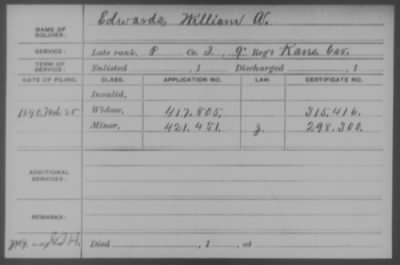 NAME OF SOLDIER: Edwards, William A.
SERVICE: Late rank, P Co. I, 9" Reg't Kans. Cav.
TERM OF SERVICE: Enlisted , 1 Discharged , 1
DATE OF FILING. CLASS. APPLICATION NO. LAW. CERTIFICATE NO.
Invalid,
1890, Feb. 25, Widow, 417.805. 315.416.
Minor, 421.451. 298.300.
ADDITIONAL SERVICES:
REMARKS:
Died , 1 , at